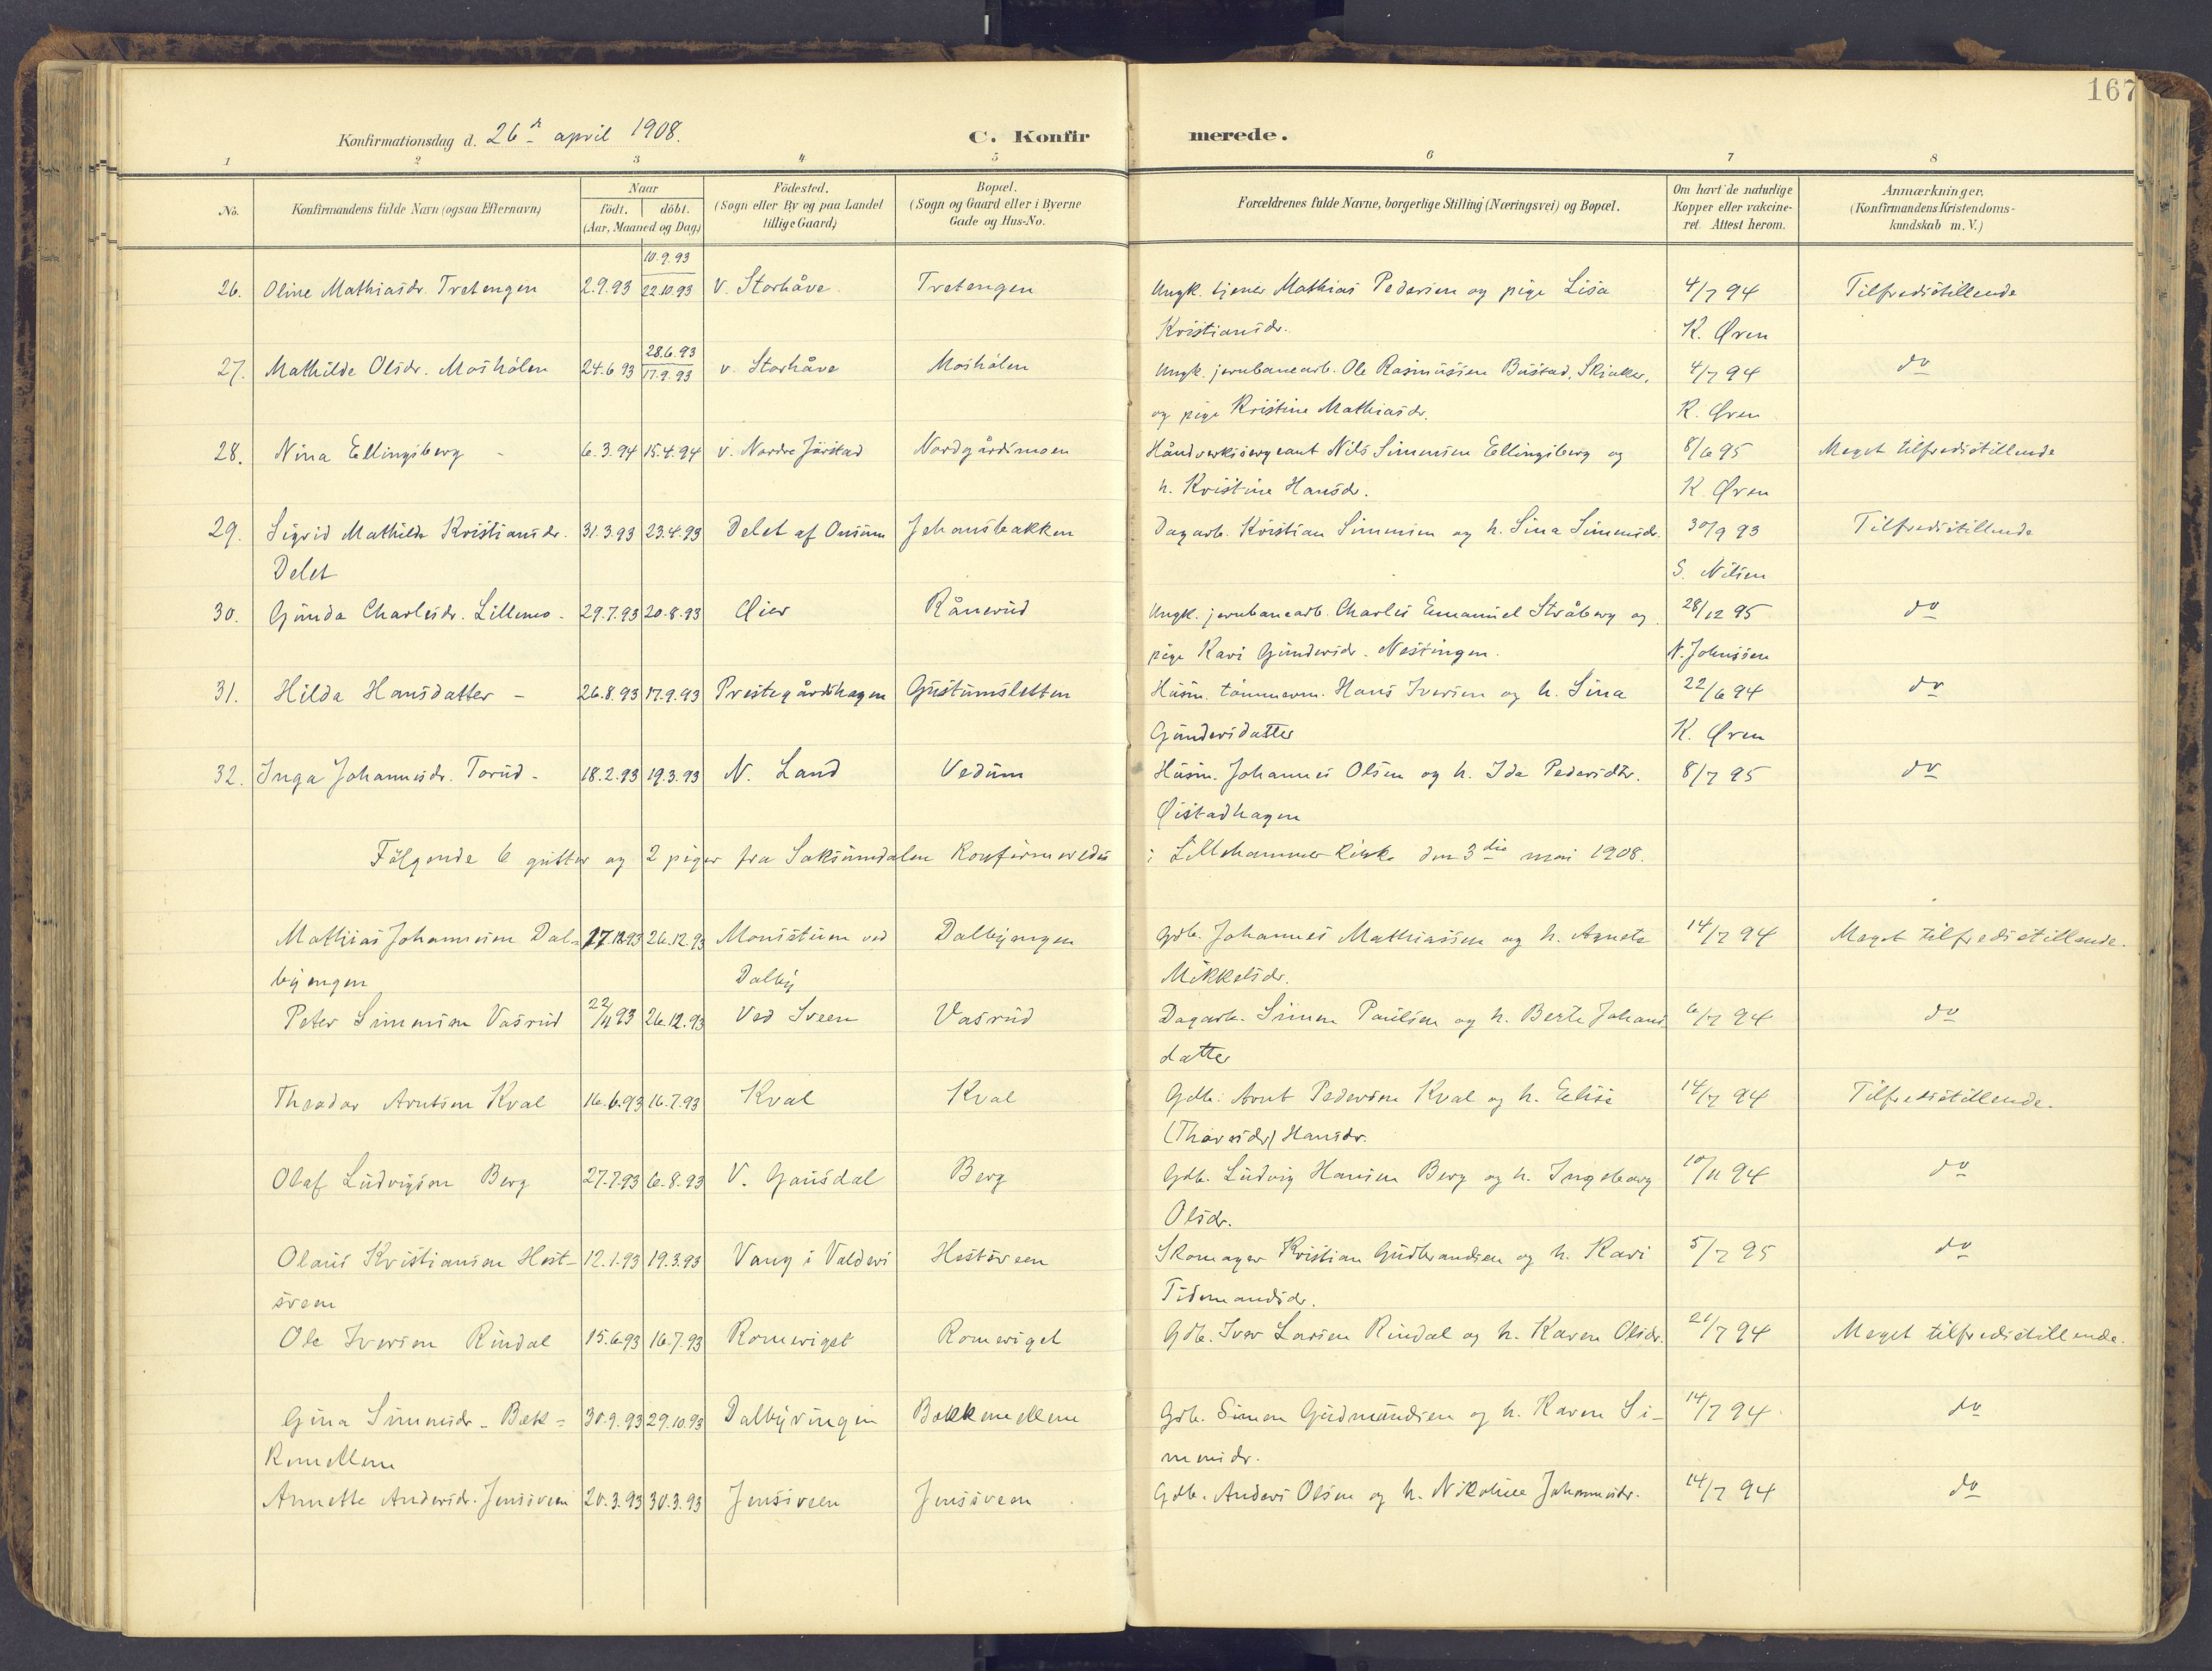 167
Konfirmationsdag d. 26de april 1908.
C. Konfirmerede.
1 2 3 4 5 6 7 8
No. Konfirmandens fulde Navn (ogsaa Efternavn) Naar födt. döbt. (Aar, Maaned og Dag) Födested. (Sogn eller By og paa Landet tillige Gaard) Bopæl. (Sogn og Gaard eller i Byerne Gade og Hus-No. Forældrenes fulde Navne, borgerlige Stilling (Næringsvei) og Bopæl. Om havt de naturlige Kopper eller vakcineret. Attest herom. Anmærkninger. (Konfirmandens Kristendomskundskab m. V.)
10.9.93
26. Oline Mathiasdr. Tretengen 2.9.93 22.10.93 v. Storhåve Tretengen Ungk. tjener Mathias Pedersen og pige Lisa 4/7 94 Tilfredsstillende
Kristiansdr. K. Øren
28.6.93
27. Mathilde Olsdr. Moshölen 24.6 93 17.9.93 v. Storhåve Moshölen Ungk. jernbanearb. Ole Rasmussen Bustad, Skiaker, 4/7 94 do
og pige Kristine Mathiasdr. K. Øren
28. Nina Ellingsberg - 6.3.94 15.4.94 v. Nordre Jörstad Nordgårdsmoen Håndverkssergeant Nils Simensen Ellingsberg og 8/6 95 Meget tilfredsstillende
h. Kristine Hansdr. K. Øren
29. Sigrid Mathilde Kristiansdr. 31.3.93 23.4.93 Delet af Onsum Jehansbakken Dagarb. Kristian Simensen og h. Sina Simensdr. 30/9 93 Tilfredsstillende
Delet S. Nilsen
30. Gunda Charlesdr. Lillemo - 29.7.93 20.8.93 Öier Rånerud Ungk. jernbanearb. Charles Emanuel Stråberg og 28/12 95 do
pige Kari Gundersdr. Nestingen. N. Johnssen
31. Hilda Hansdatter - 26.8.93 17.9.93 Prestegårdshagen Gustumsletten Husm. tömmerm. Hans Iversen og h. Sina 22/6 94 do
Gundersdatter K. Øren
32. Inga Johannesdr. Torud - 18.2.93 19.3.93 N. Land Vedum Husm. Johannes Olsen og h. Ida Pedersdtr. 8/7 95 do
Øistadhagen
Fölgende 6 gutter og 2 piger fra Saksumdalen konfirmeredes i Lillehammer kirke den 3die mai 1908.
Mathias Johannesen Dal- 17.12.93 26.12.93 Monsstuen ved Dalbyengen Gdb. Johannes Mathiassen og h. Agnete 14/7 94 Meget tilfredsstillende.
byengen Dalby Mikkelsdr.
Peter Simensen Vasrud 22/11 93 26.12.93 Ved Sveen Vasrud Dagarb. Simen Paulsen og h. Berte Johans 6/7 94 do
datter
Theodor Arntsen Kval 16.6.93 16.7.93 Kval Kval Gdb. Arnt Pedersen Kval og h. Elise 14/7 94 Tilfredsstillende.
(Thoresdr) Hansdr.
Olaf Ludvigsen Berg 27.7.93 6.8.93 V. Gausdal Berg Gdb. Ludvig Hansen Berg og h. Ingeborg 10/11 94 do
Olsdr.
Olaus Kristiansen Hest- 12.1.93 19.3.93 Vang i Valders Hestsveen Skomager Kristian Gudbrandsen og h. Kari 5/7 95 do
sveen Tidemandsdr.
Ole Iversen Rindal 15.6.93 16.7.93 Romeriget Romeriget Gdb. Iver Larsen Rindal og h. Karen Olsdr. 21/7 94 Meget tilfredsstillende.
Gina Simensdr. Bæk- 30.9.93 29.10.93 Dalbyringen Bækkemellem Gdb. Simen Gudmundsen og h. Karen Si- 14/7 94 do
kemellem mensdr.
Annette Andersdr. Jenssveen 20.3.93 30.3.93 Jenssveen Jenssveen Gdb. Anders Olsen og h. Nikoline Johannesdr. 14/7 94 do